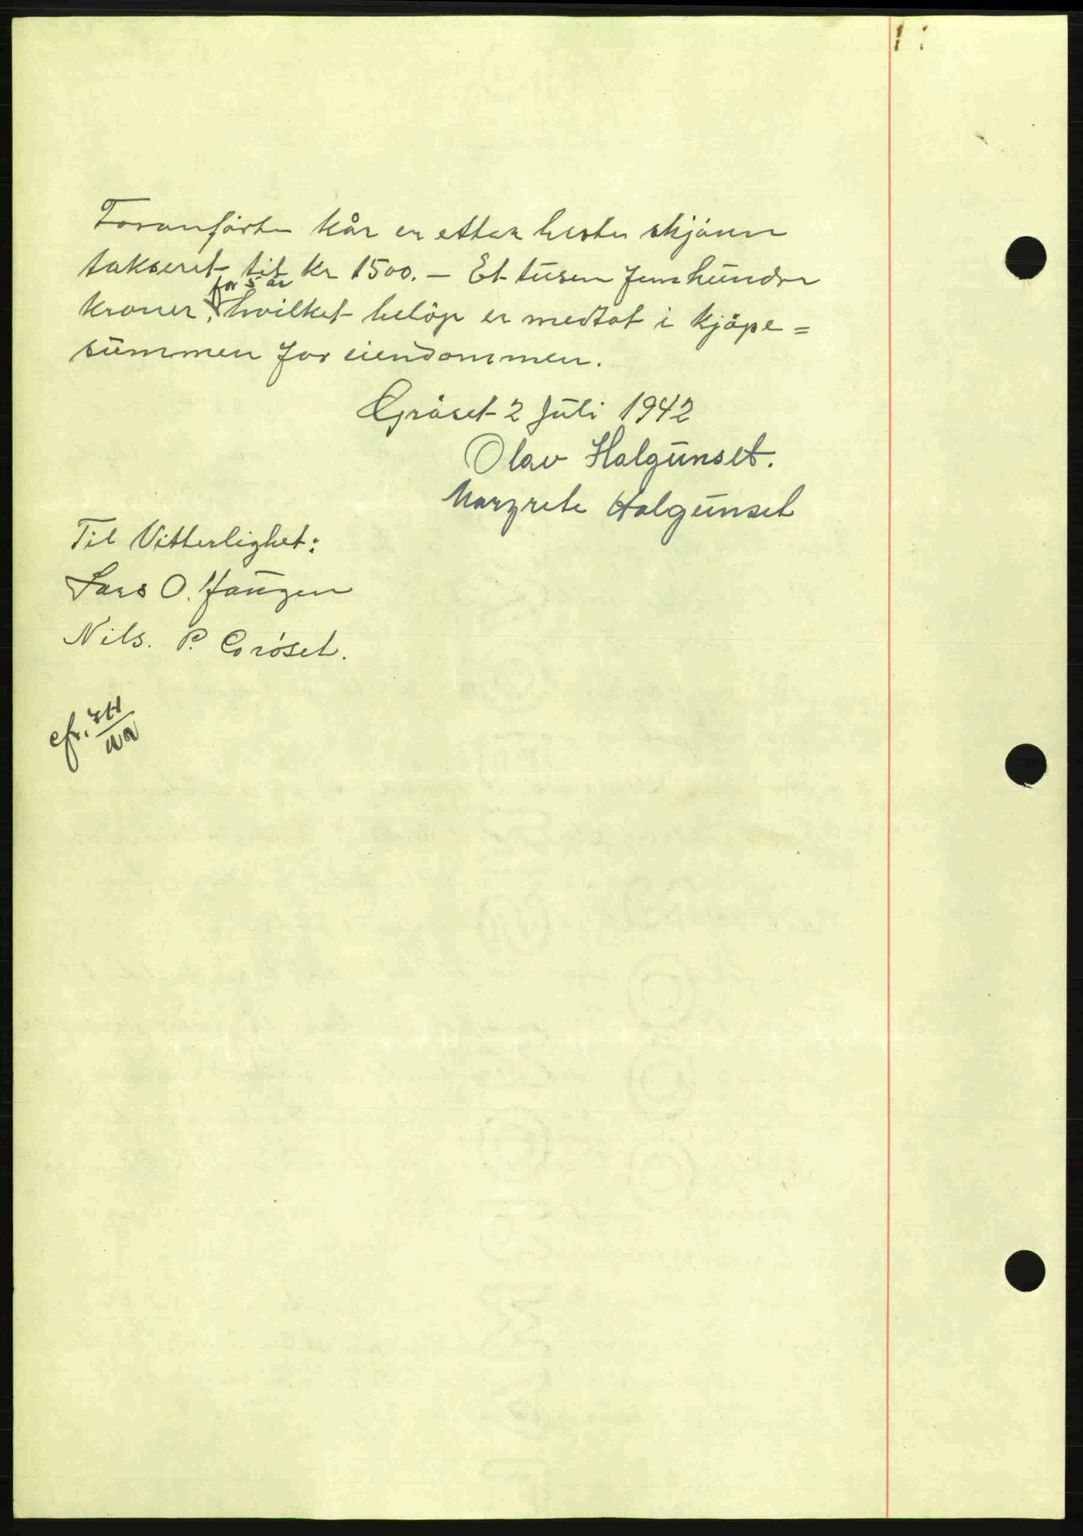 Foranførte kår er etter beste skjönn
takseret til kr 1500. — Et tusen femhundre
for 5 år
kroner, hvilket belöp er medtat i kjöpe=
summen for eiendommen.
Gröset 2 Juli 1942
Olav Halgunset.
Margrete Halgunset
Til Vitterlighet:
Lars O. Haugen
Nils. P. Gröset.
cfr.